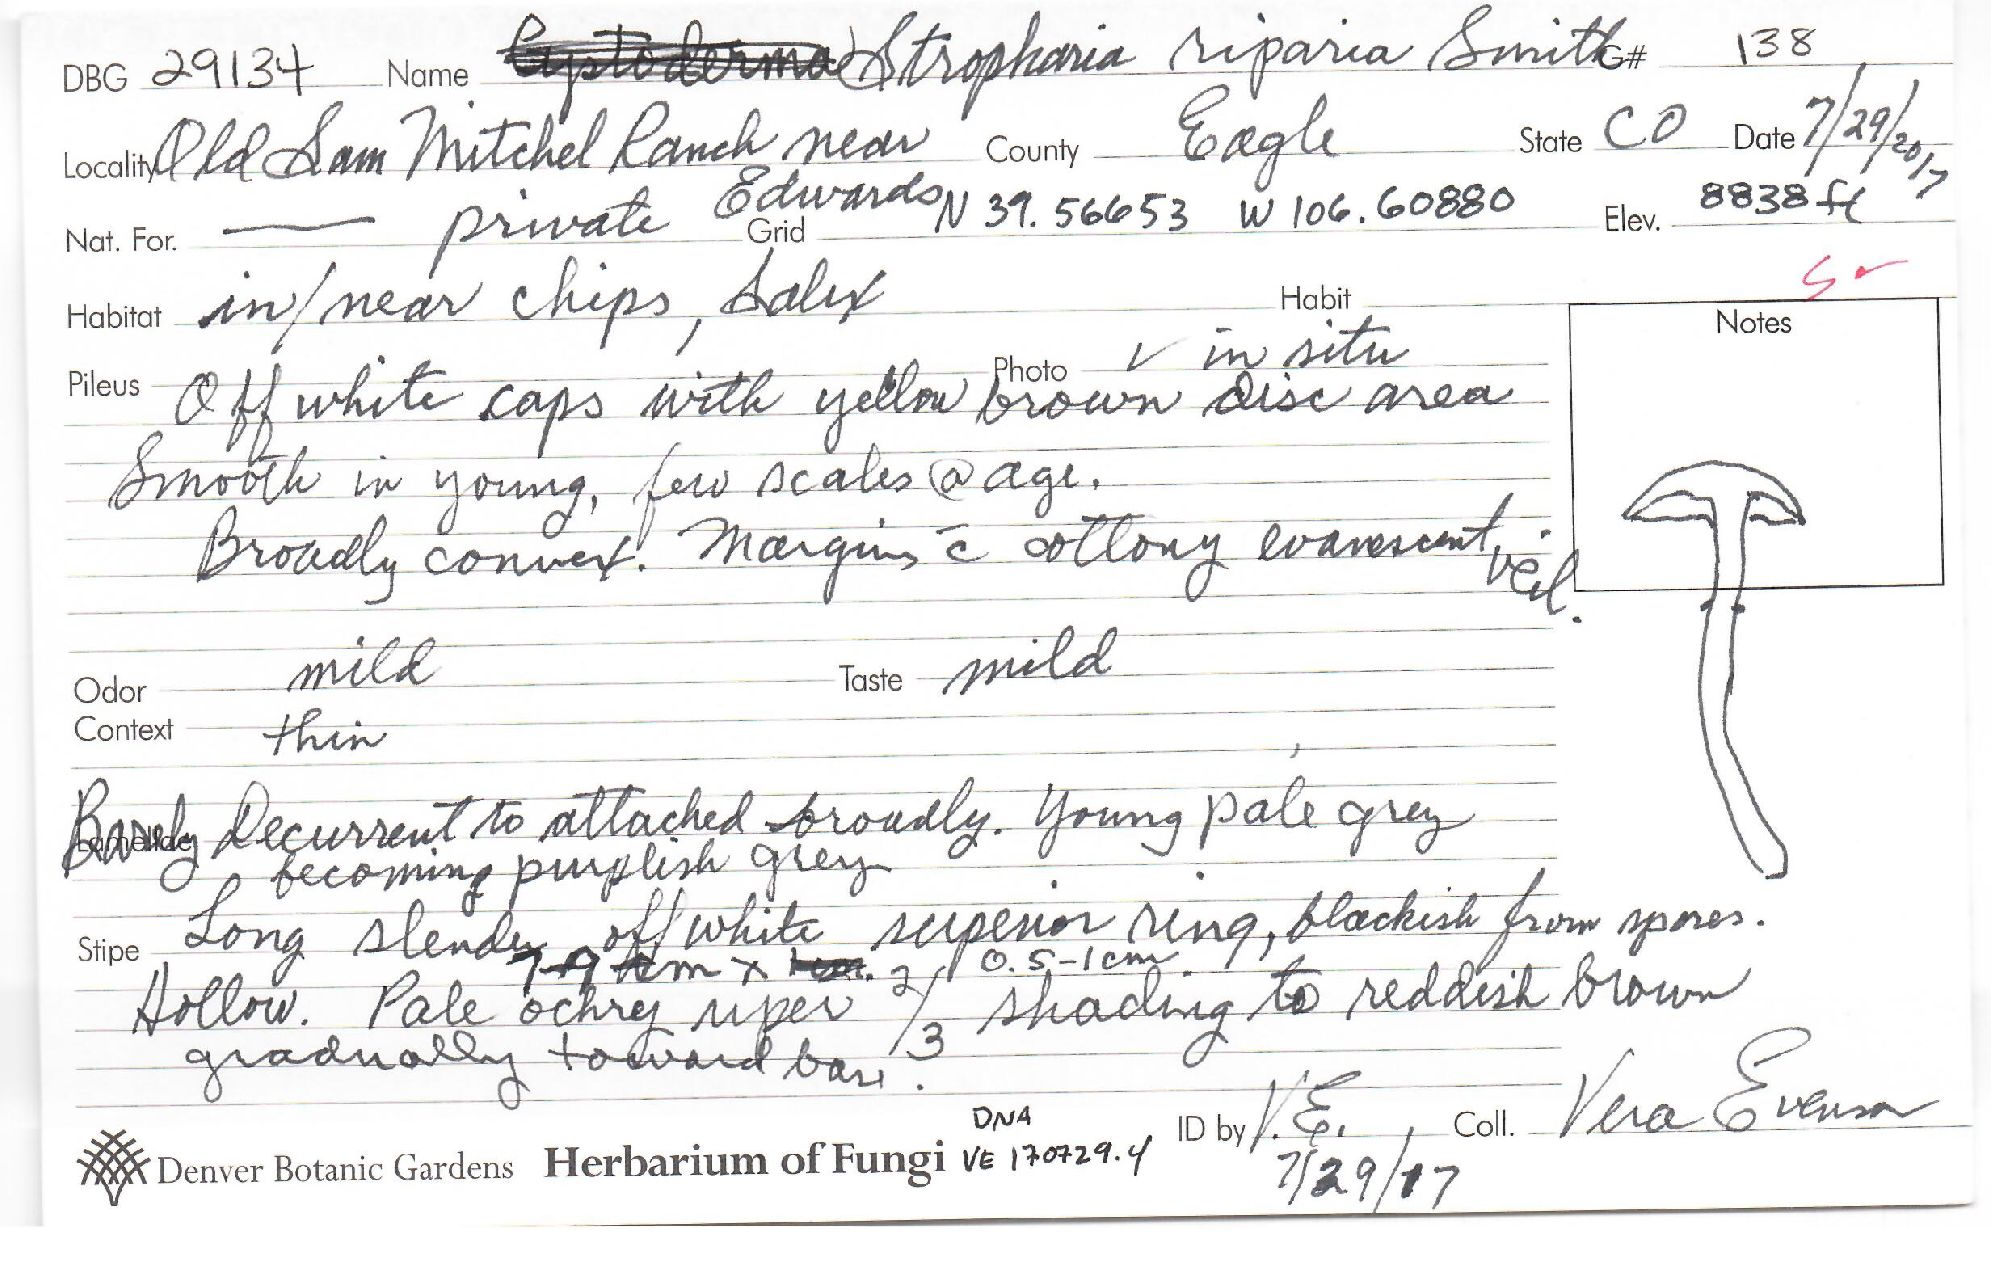 DBG 29134 Name Cystoderma Stropharia riparia Smith G# 138
Locality Old Sam Mitchel Ranch near Edwards County Eagle State CO Date 7/29/2017
Nat. For. — private Grid N 39.56653 W 106.60880 Elev. 8838 ft
Habitat in/near chips, Salix Habit
Notes
Photo ✓ in situ
Pileus Off white caps with yellow brown disc area
Smooth in young, few scales @ age.
Broadly convex. Margins c̄ cottony evanescent veil.
Odor mild Taste mild
Context thin
Lamellae Barely Decurrent to attached broadly. Young pale grey
becoming purplish grey
Stipe Long slender off white superior ring, blackish from spores.
7-9 cm x 0.5-1cm
Hollow. Pale ochrey upper 2/3 shading to reddish brown
gradually toward base.
DNA
Denver Botanic Gardens Herbarium of Fungi VE 170729.4 ID by V.E. Coll. Vera Evenson
7/29/17